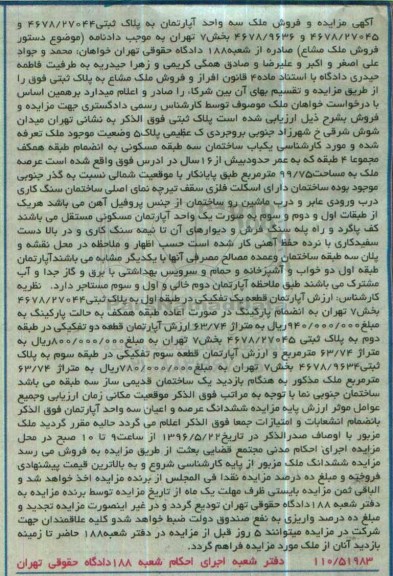 آگهی مزایده و فروش ملک سه واحد آپارتمان به پلاک ثبتی ۴۶۷۸/۲۷۰۴۴ و
۴۶۷۸/۲۷۰۴۵ و ۴۶۷۸/۹۶۳۶ بخش۷ تهران به موجب دادنامه (موضوع دستور
فروش ملک مشاع) صادره از شعبه۱۸۸ دادگاه حقوقی تهران خواهان: محمد و جواد
علی اصغر و اکبر و علیرضا و صادق همگی کریمی و زهرا حیدریه به طرفیت فاطمه
حیدری دادگاه با استناد ماده۴ قانون افراز و فروش ملک مشاع به پلاک ثبتی فوق را
از طریق مزایده و تقسیم بهای آن بین شرکا، را صادر و اعلام میدارد برهمین اساس
با درخواست خواهان ملک موصوف توسط کارشناس رسمی دادگستری جهت مزایده و
فروش بشرح ذیل ارزیابی شده است پلاک ثبتی فوق الذکر به نشانی تهران میدان
شوش شرقی خ شهرزاد جنوبی بروجردی ک عظیمی پلاک۵ وضعیت موجود ملک تعرفه
شده و مورد کارشناسی یکباب ساختمان سه طبقه مسکونی به انضمام طبقه همکف
مجموعا ۴ طبقه که به عمر حدودبیش از۱۶سال در ادرس فوق واقع شده است عرصه
ملک به مساحت۹۹/۷۵ مترمربع طبق پایانکار با موقعیت شمالی نسبت به گذر جنوبی
موجود بوده ساختمان دارای اسکلت فلزی سقف تیرچه نمای اصلی ساختمان سنگ کاری
درب ورودی عابر و درب ماشین رو ساختمان از جنس پروفیل آهن می باشد هریک
از طبقات اول و دوم و سوم به صورت یک واحد آپارتمان مسکونی مستقل می باشند
کف پاگرد و راه پله سنگ فرش و دیوارهای آن تا نیمه سنگ کاری و در بالا دست
سفیدکاری با نرده حفظ آهنی کار شده است حسب اظهار و ملاحظه در محل نقشه و
پلان سه طبقه ساختمان وعمده مصالح مصرفی آنها با یکدیگر مشابه می باشندآپارتمان
طبقه اول دو خواب و آشپزخانه و حمام و سرویس بهداشتی با برق و گاز جدا و آب
مشترک می باشند طبق ملاحظه آپارتمان دوم خالی و اول و سوم مستاجر دارد. نظریه
کارشناس: ارزش آپارتمان قطعه یک تفکیکی در طبقه اول به پلاک ثبتی۴۶۷۸/۲۷۰۴۴
بخش۷ تهران به انضمام پارکینگ در صورت آماده طبقه همکف به حالت پارکینگ به
مبلغ۹۴۰/۰۰۰/۰۰۰ریال به متراژ ۶۳/۷۴ ارزش آپارتمان قطعه دو تفکیکی در طبقه
دوم به پلاک ثبتی ۴۶۷۸/۲۷۰۴۵ بخش۷ تهران به مبلغ۸۰۰/۰۰۰/۰۰۰ریال به
متراژ ۶۳/۷۴ مترمربع و ارزش آپارتمان قطعه سوم تفکیکی در طبقه سوم به پلاک
ثبتی۴۶۷۸/۹۶۳۴ بخش۷ تهران به مبلغ۷۸۰/۰۰۰/۰۰۰ریال به متراژ ۶۳/۷۴
مترمربع ملک مذکور به هنگام بازدید یک ساختمان قدیمی ساز سه طبقه می باشد
ساختمان جنوبی نما با توجه به مراتب فوق الذکر موقعیت مکانی زمان ارزیابی وجمیع
عوامل موثر ارزش پایه مزایده ششدانگ عرصه و اعیان سه واحد آپارتمان فوق الذکر
بانضمام انشعابات و امتیازات جمعا فوق الذکر اعلام می گردد حالیه مقرر گردید ملک
مزبور با اوصاف صدرالذکر در تاریخ۱۳۹۶/۵/۲۲ از ساعت۹ تا ۱۰ صبح در محل
مزایده اجرای احکام مدنی مجتمع قضایی بعثت از طریق مزایده به فروش می رسد
مزایده ششدانگ ملک مزبور از پایه کارشناسی شروع و به بالاترین قیمت پیشنهادی
فروخته و مبلغ ده درصد مزایده نقدا فی المجلس از برنده مزایده اخذ خواهد شد و
الباقی ثمن مزایده بایستی ظرف مهلت یک ماه از تاریخ مزایده توسط برنده مزایده به
دفتر شعبه ۱۸۸دادگاه حقوقی تهران تودیع گردد و در غیر اینصورت مزایده تجدید و
مبلغ ده درصد واریزی به نفع صندوق دولت ضبط خواهد شدو کلیه علاقمندان جهت
شرکت در مزایده میتوانند ۵ روز قبل از مزایده در دفتر شعبه۱۸۸ حاضر تا زمینه
بازدید آنان از ملک مورد مزایده فراهم گردد.
۱۱۰/۵۱۹۸۳ دفتر شعبه اجرای احکام شعبه ۱۸۸دادگاه حقوقی تهران